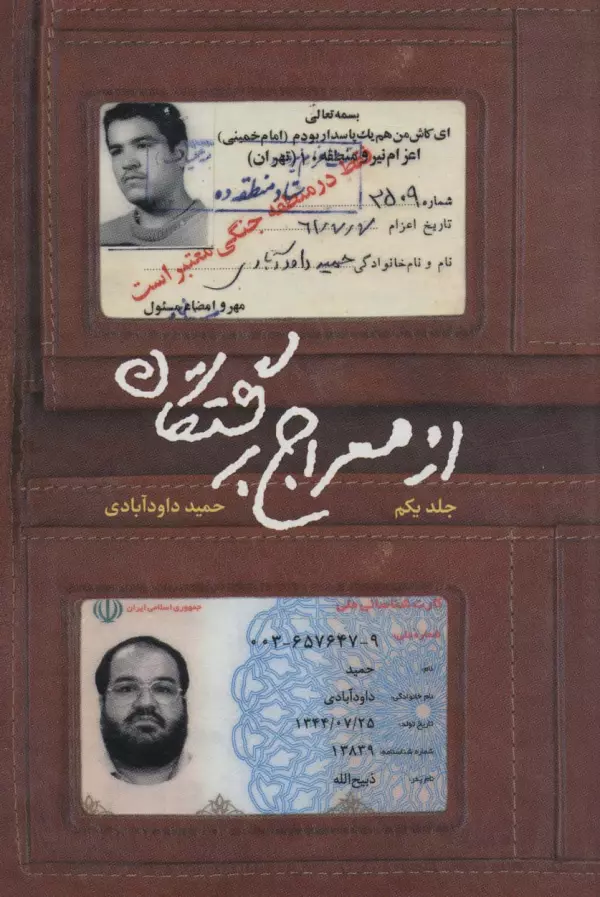 بسمه تعالی
ای کاش من هم یک پاسدار بودم (امام خمینی)
اعزام نیرو منطقه ۱۰ (تهران)
ستاد منطقه ده
فقط در منطقه جنگی معتبر است
شماره ۳۵۰۹
تاریخ اعزام ۶۱/۷/۷
نام و نام خانوادگی حمید داودآبادی
مهر و امضاء مسئول
از معراج برگشتگان
جلد یکم
حمید داودآبادی
جمهوری اسلامی ایران
کارت شناسائی ملی
شماره ملی: ۰۰۳-۶۵۷۶۴۷-۹
نام: حمید
نام خانوادگی: داودآبادی
تاریخ تولد: ۱۳۴۴/۰۷/۲۵
شماره شناسنامه: ۱۳۸۳۹
نام پدر: ذبیح‌الله